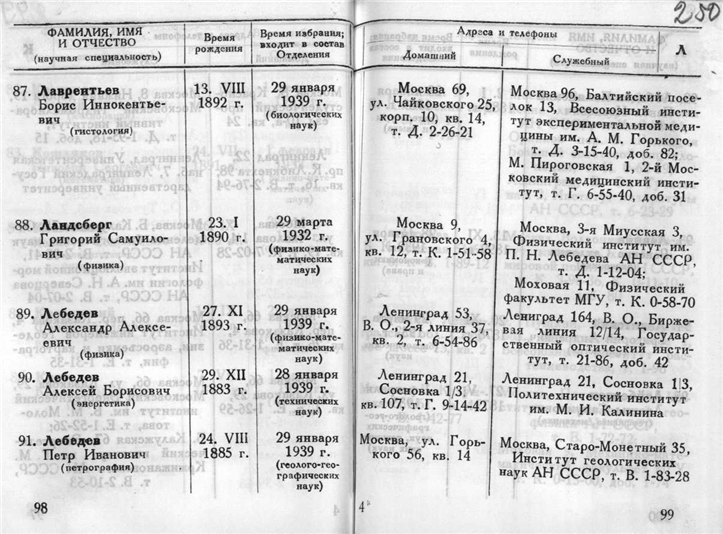 ФАМИЛИЯ, ИМЯ
И ОТЧЕСТВО
(научная специальность)
Время
рождения
Время избрания;
входит в состав
Отделения
87. Лаврентьев
Борис Иннокентье-
вич
(гистология)
13. VIII
1892 г.
29 января
1939 г.
(биологических
наук)
88. Ландсберг
Григорий Самуило-
вич
(физика)
23. I
1890 г.
29 марта
1932 г.
(физико-мате-
матических
наук)
89. Лебедев
Александр Алексе-
евич
(физика)
27. XI
1893 г.
29 января
1939 г.
(физико-мате-
матических
наук)
90. Лебедев
Алексей Борисович
(энергетика)
29. XII
1883 г.
28 января
1939 г.
(технических
наук)
91. Лебедев
Петр Иванович
(петрография)
24. VIII
1885 г.
29 января
1939 г.
(геолого-гео-
графических
наук)
98
250
Адреса и телефоны
Домашний
Служебный
Л
Москва 69,
ул. Чайковского 25,
корп. 10, кв. 14,
т. Д. 2-26-21
Москва 96, Балтийский посе-
лок 13, Всесоюзный инсти-
тут экспериментальной меди-
цины им. А. М. Горького,
т. Д. 3-15-40, доб. 82;
М. Пироговская 1, 2-й Мос-
ковский медицинский инсти-
тут, т. Г. 6-55-40, доб. 31
Москва 9,
ул. Грановского 4,
кв. 12, т. К. 1-51-58
Москва, 3-я Миусская 3,
Физический институт им.
П. Н. Лебедева АН СССР,
т. Д. 1-12-04;
Моховая 11, Физический
факультет МГУ, т. К. 0-58-70
Ленинград 53,
В. О., 2-я линия 37,
кв. 2, т. 6-54-86
Ленинград 164, В. О., Бирже-
вая линия 12/14, Государ-
ственный оптический инсти-
тут, т. 21-86, доб. 42
Ленинград 21,
Сосновка 1/3,
кв. 107, т. Г. 9-14-42
Ленинград 21, Сосновка 1/3,
Политехнический институт
им. М. И. Калинина
Москва, ул. Горь-
кого 56, кв. 14
Москва, Старо-Монетный 35,
Институт геологических
наук АН СССР, т. В. 1-83-28
4*
99